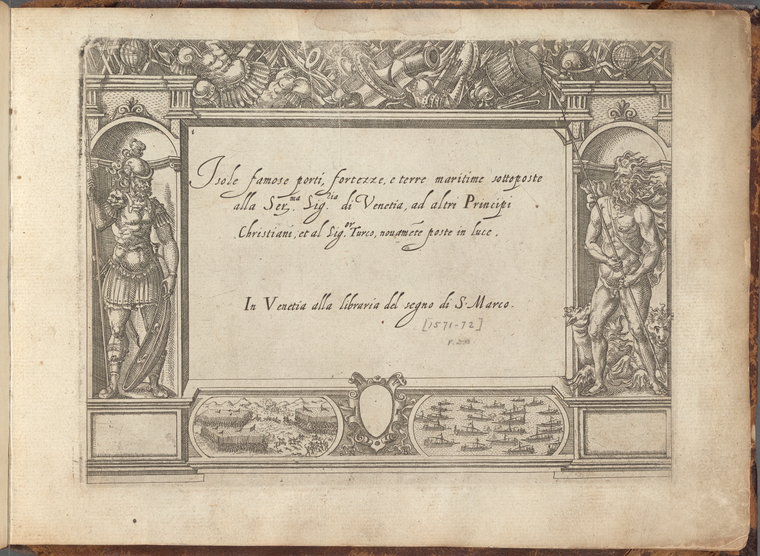 Isole famose porti, fortezze, e terre maritime sottoposte
alla Ser.ma Sig.ria di Venetia, ad altri Principi
Christiani, et al Sig.or Turco, novamēte poste in luce.
In Venetia alla libraria del segno di S. Marco.
[1571-72]